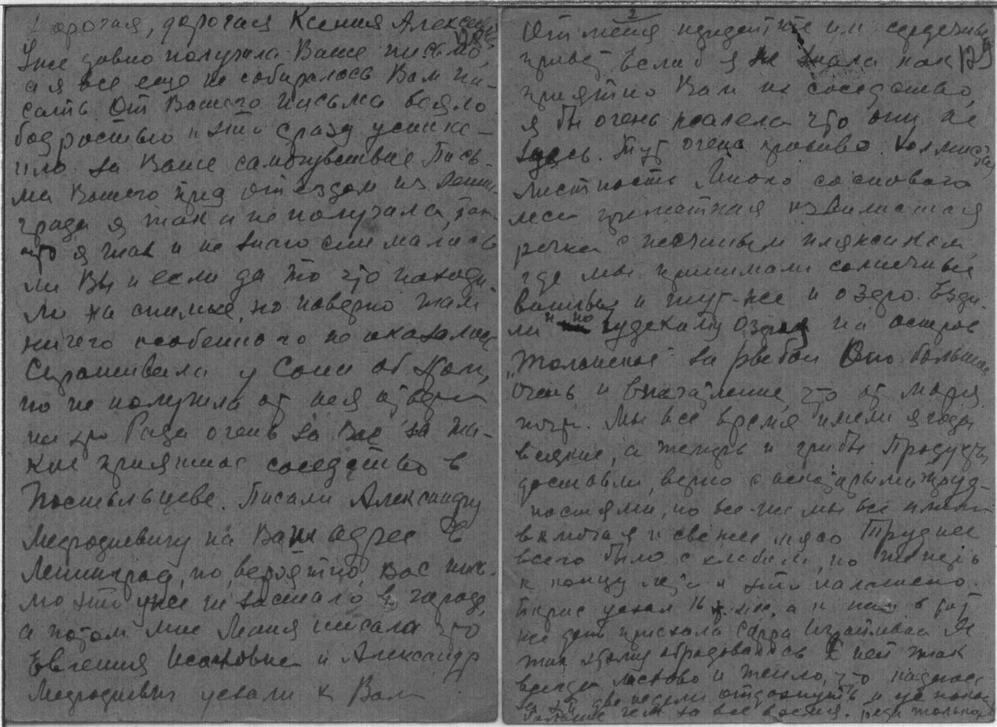 Дорогая, дорогая Ксения Александровна
Уже давно получила Ваше письмо,
а я все еще не собиралось Вам пи-
сать. От Вашего письма веяло
бодростью и это сразу успока-
ило за Ваше самочувствие. Пись-
ма Вашего пред отъездом из Ленин-
града я так и не получала, так
что я так и не знаю снимались
ли Вы и если да то что находи-
ли на снимке, но наверно там
ничего особенного не оказалось
Спрашивала у Сони об
но не получила от нея ответа
на это. Рада очень за Вас за та-
кое приятное соседство в
Писали Александру
Медродиевичу на Ваш адрес в
Ленинград, но, вероятно, Вас пись-
мо это уже не застало в городе,
а потом мне писала что
Евгения Исаковна и Александр
Медродиевич уехали к Вам
2
129
От меня передайте им сердечный
привет. Если б я не знала как
приятно Вам их соседство,
я бы очень жалела что они не
здесь. Тут очень красиво. Холмистая
местность. Много соснового
леса извилистая
речка с песчаным пляжиком
где мы принимали солнечные
ванны и тут-же и озеро. Езди-
ли и по Чудскому озеру на остров
за рыбой. Оно большое
очень и впечатление что от моря
почти. Мы все время имели ягоды
всякие, а теперь и грибы. Продукты
доставали, верно с труд-
ностями, но все-же мы все имели
включая и свежее мясо. Труднее
всего было с хлебом, но теперь
к концу лета и это налажено.
Борис уехал 16 а к нам в тот
же день приехала Сарра Израилевна. Я
так обрадовалась. С ней так
всегда ласково и тепло, что надеюсь
за эти две недели отдохнуть и
больше чем за все время. Ведь только